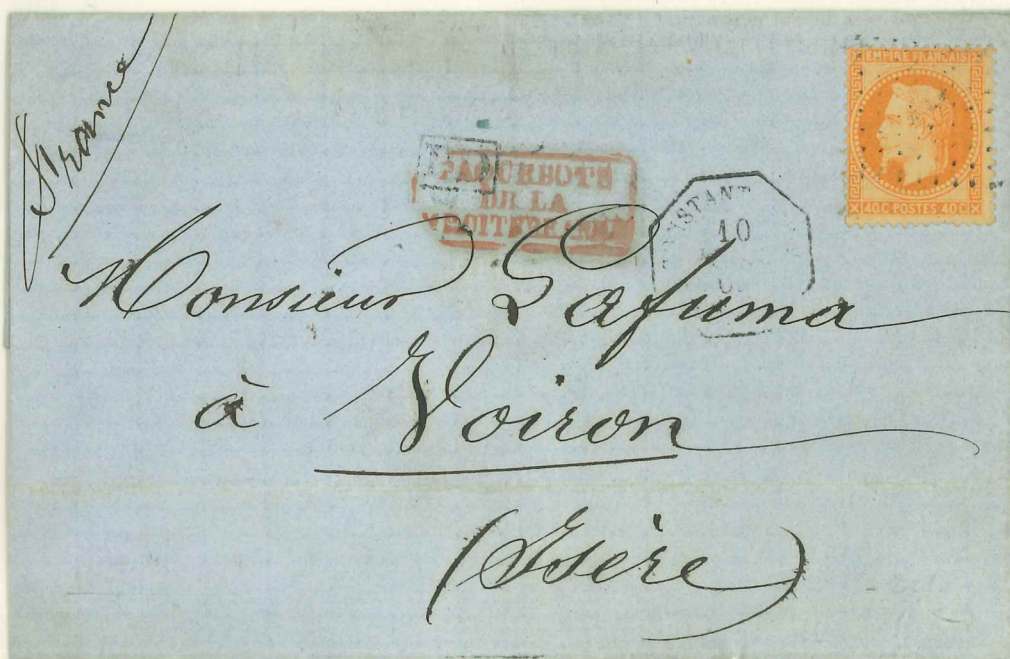 France
EMPIRE FRANÇAIS
40 C POSTES 40 C
PD
PAQUEBOTS
DE LA
MEDITERRANEE
CONSTANT
10
Monsieur Lafuma
à Voiron
(Isère)